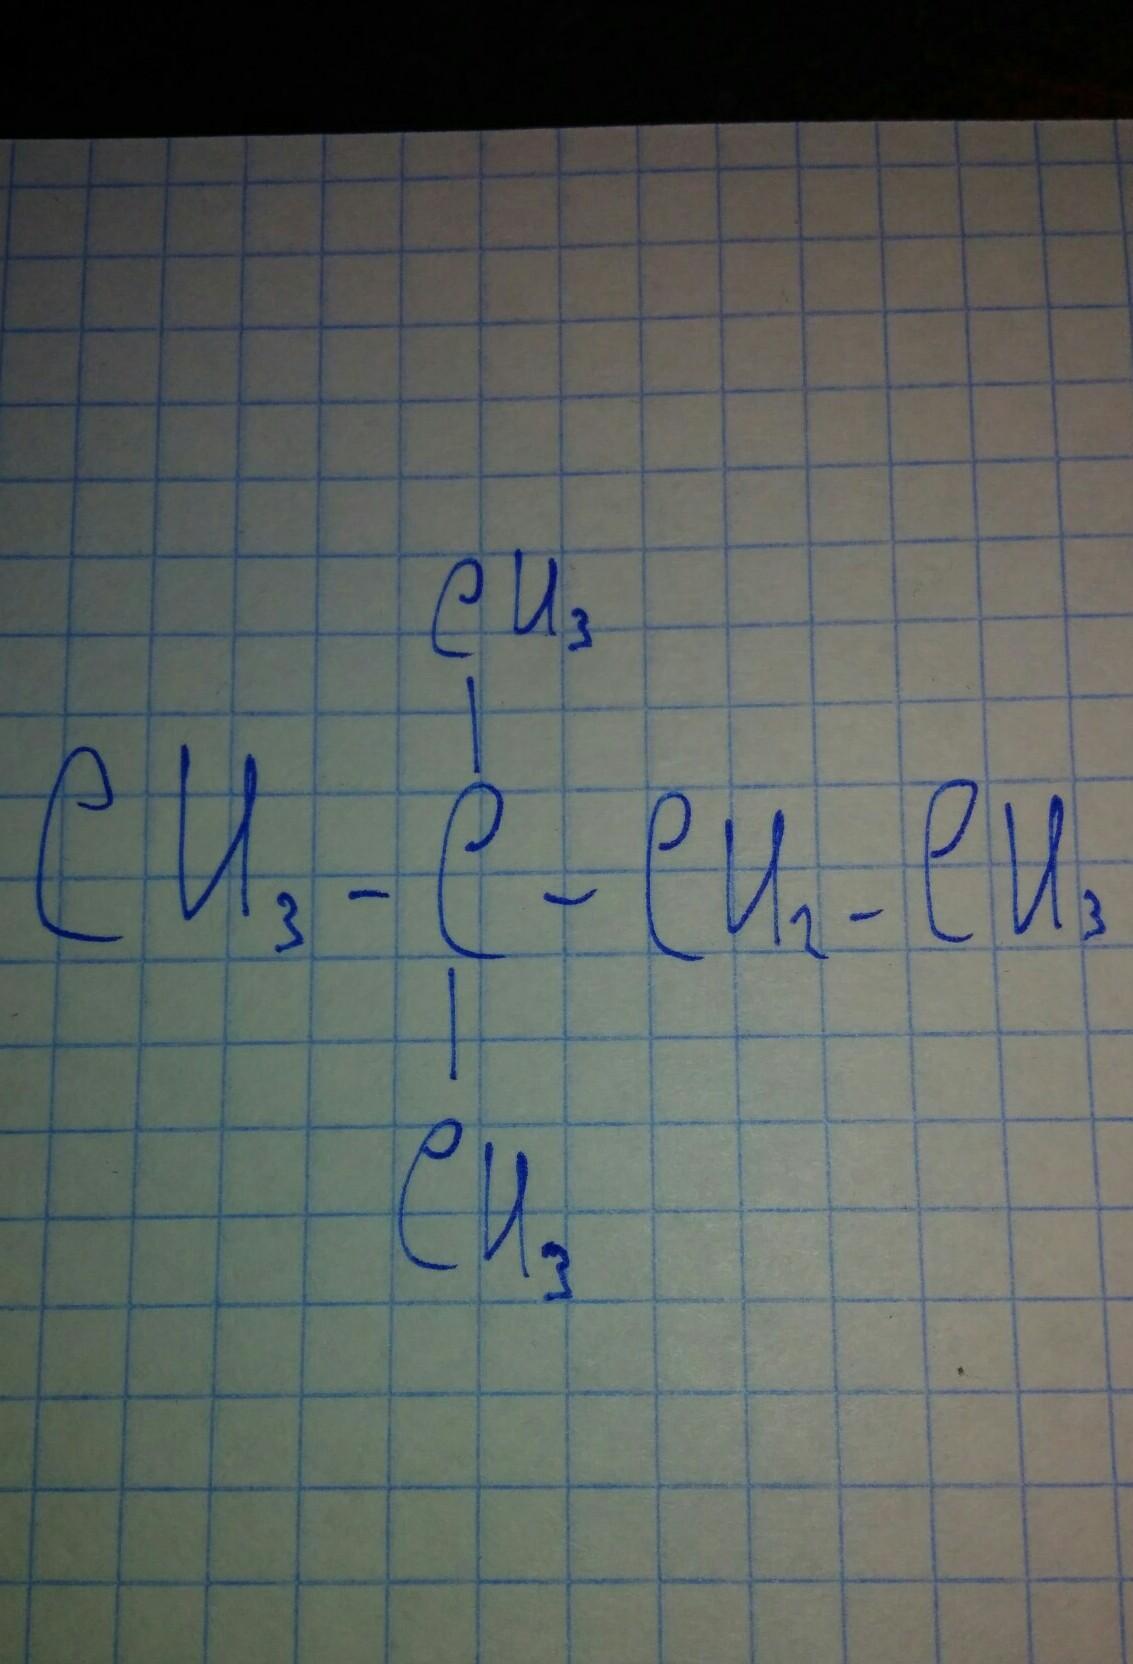 CH3
CH3-C-CH2-CH3
CH3